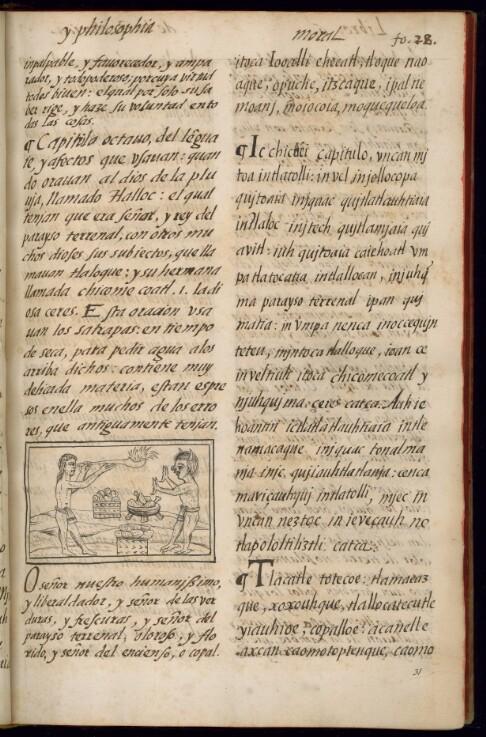 y philosophia
moral
fo. 28.
inpalpable, y fauorecedor, y ampa
rador, y todopoderoso, por cuya virtud
todos biuen: el qual por solo su sa
ber rige, y haze su voluntad en to
das las cosas.
¶ Capitulo octauo, del lēgua
je y afectos que vsauan: quan
do orauan al dios de la plu
uja, llamado tlalloc: el qual
tenjan que era señor, y rey del
parayso terrenal, con otros mu
chos dioses sus subiectos, que lla
mauan tlaloque: y su hermana
llamada chicome coatl. 1. la di
osa ceres. Esta oracion vsa
uan los satrapas: en tiempo
de seca, para pedir agua a los
arriba dichos: contiene muy
delicada materia, estan espre
sos en ella muchos de los erro
res, que antiguamente tenjan.
O señor nuestro humanissimo,
y liberal dador, y señor de las ver
duras, y frescuras, y señor del
parayso terrenal, oloroso, y flo
rido, y señor del encienso, o copal.
itoca Iooalli ehecatl, tloque nao
aque, opuche, itzcaque, ipal ne
moanj, moiocoia, moquequeloa.
¶ Ic chicuei capitulo, vncan mj
toa in tlatolli: in vel injellocopa
qujtoaia injquac qujtlatlauhtiaia
in tlaloc injtech qujtlamjaia quj
avitl: iuh qujtoaia ca iehoatl vm
pa tlatocatia in tlallocan, in juhqͥ
ma parayso terrenal ipan quj
matia: in vmpa nenca in occequjn
teteu, mjntoca tlalloque, ioan ce
in veltiuh itoca chicomecoatl y
njuhquj ma ceres catca. Auh ie
hoantin ic tlatlatlauhtiaia in tle
namacaque injquac tonalma
nja injc qujiauhtlatlanja: cenca
maviçauhquj in tlatolli, injec in
vncan neztoc in ieveçauh ne
tlapololtiliztli catca.
¶ Tlacatle totecoe: tlamacaz
que, xoxouhque, tlallocatecutle
yiauhioe, copalloe: aca nelle
axcan ca omotoptenque, ca omo
31